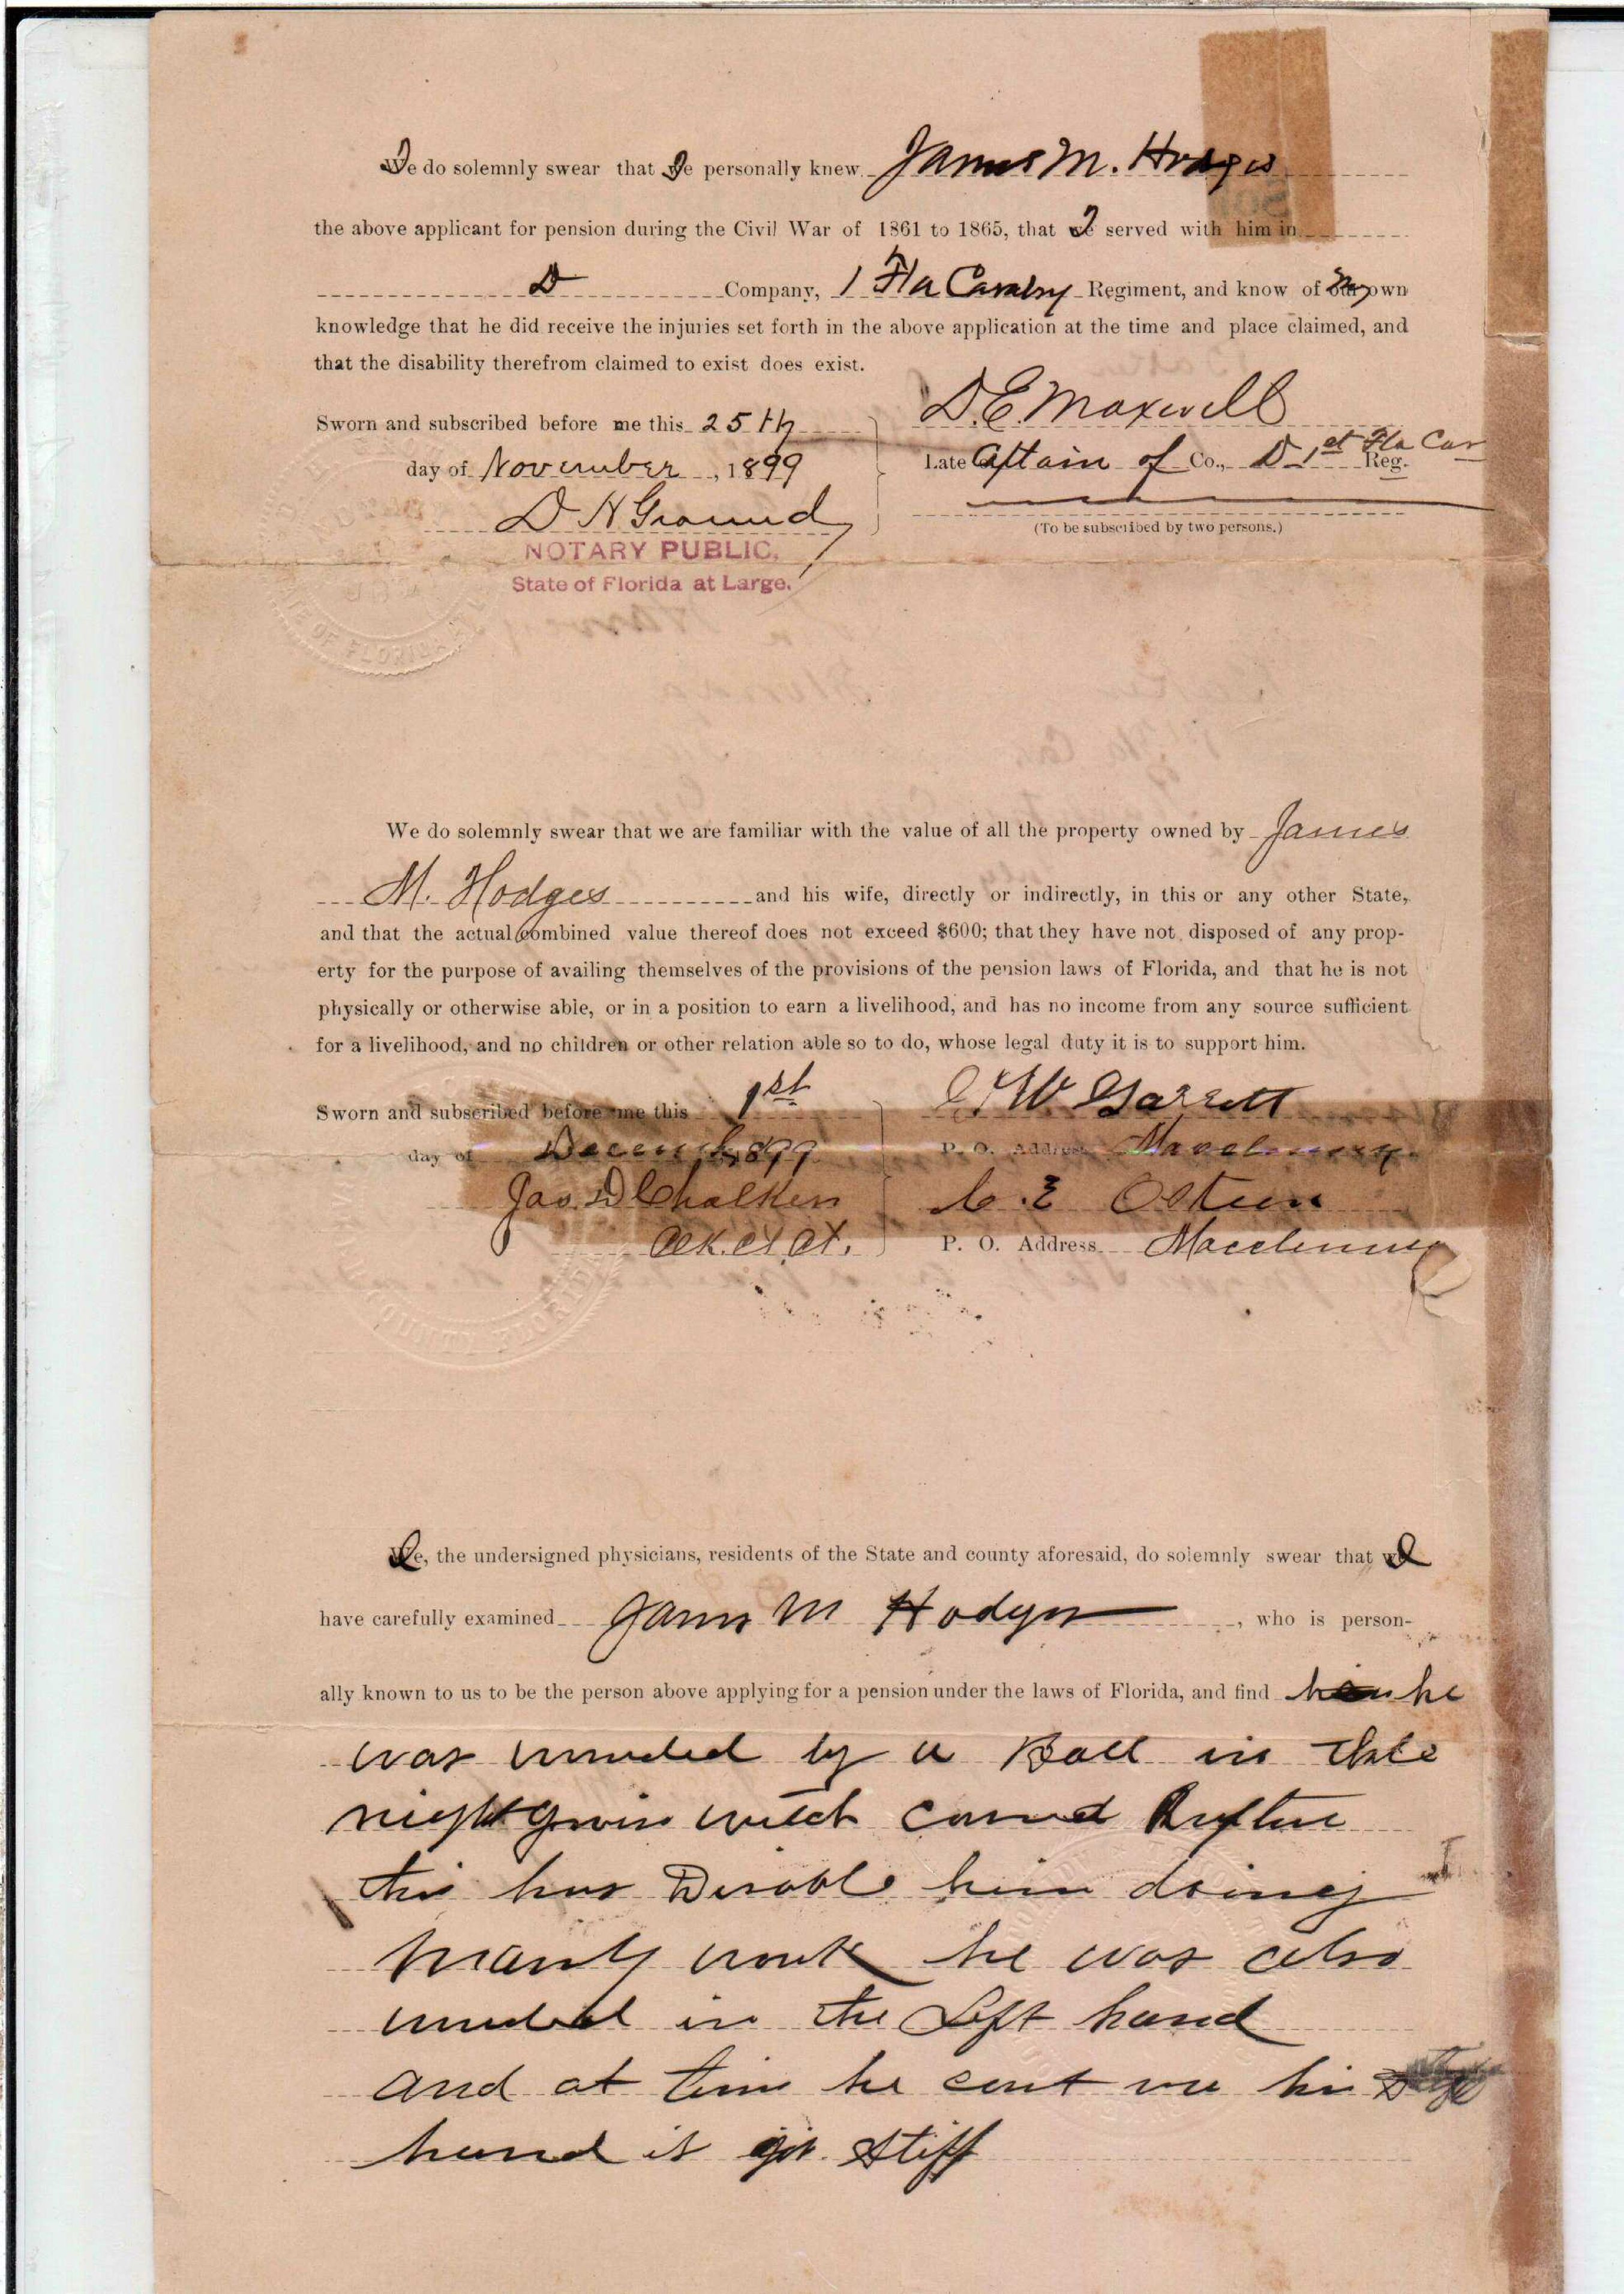 I do solemnly swear that I personally knew James M. Hodges
the above applicant for pension during the Civil War of 1861 to 1865, that I served with him in
D Company, 1 Fla Cavalry Regiment, and know of my own
knowledge that he did receive the injuries set forth in the above application at the time and place claimed, and
that the disability therefrom claimed to exist does exist.
D. E. Maxwell
Sworn and subscribed before me this 25th
day of November, 1899
Late Captain of Co., D 1st Fla Cav Reg.
D H
(To be subscribed by two persons.)
NOTARY PUBLIC,
State of Florida at Large.
We do solemnly swear that we are familiar with the value of all the property owned by James
M. Hodges and his wife, directly or indirectly, in this or any other State,
and that the actual combined value thereof does not exceed $600; that they have not disposed of any prop-
erty for the purpose of availing themselves of the provisions of the pension laws of Florida, and that he is not
physically or otherwise able, or in a position to earn a livelihood, and has no income from any source sufficient
for a livelihood, and no children or other relation able so to do, whose legal duty it is to support him.
Sworn and subscribed before me this 1st
W Garrett
day of December 1899
P. O. Address Macclenny
Jas. D Chalker
C. E Osteen
Clk. Ct Ct.
P. O. Address Macclenny
I, the undersigned physicians, residents of the State and county aforesaid, do solemnly swear that I
have carefully examined James M Hodges, who is person-
ally known to us to be the person above applying for a pension under the laws of Florida, and find he
was wunded by a Ball in
Groin witch caused Rupture
this has Disable him doing
manly work he was also
wunded in the Left hand
and at time he cant use his
hand it git stiff